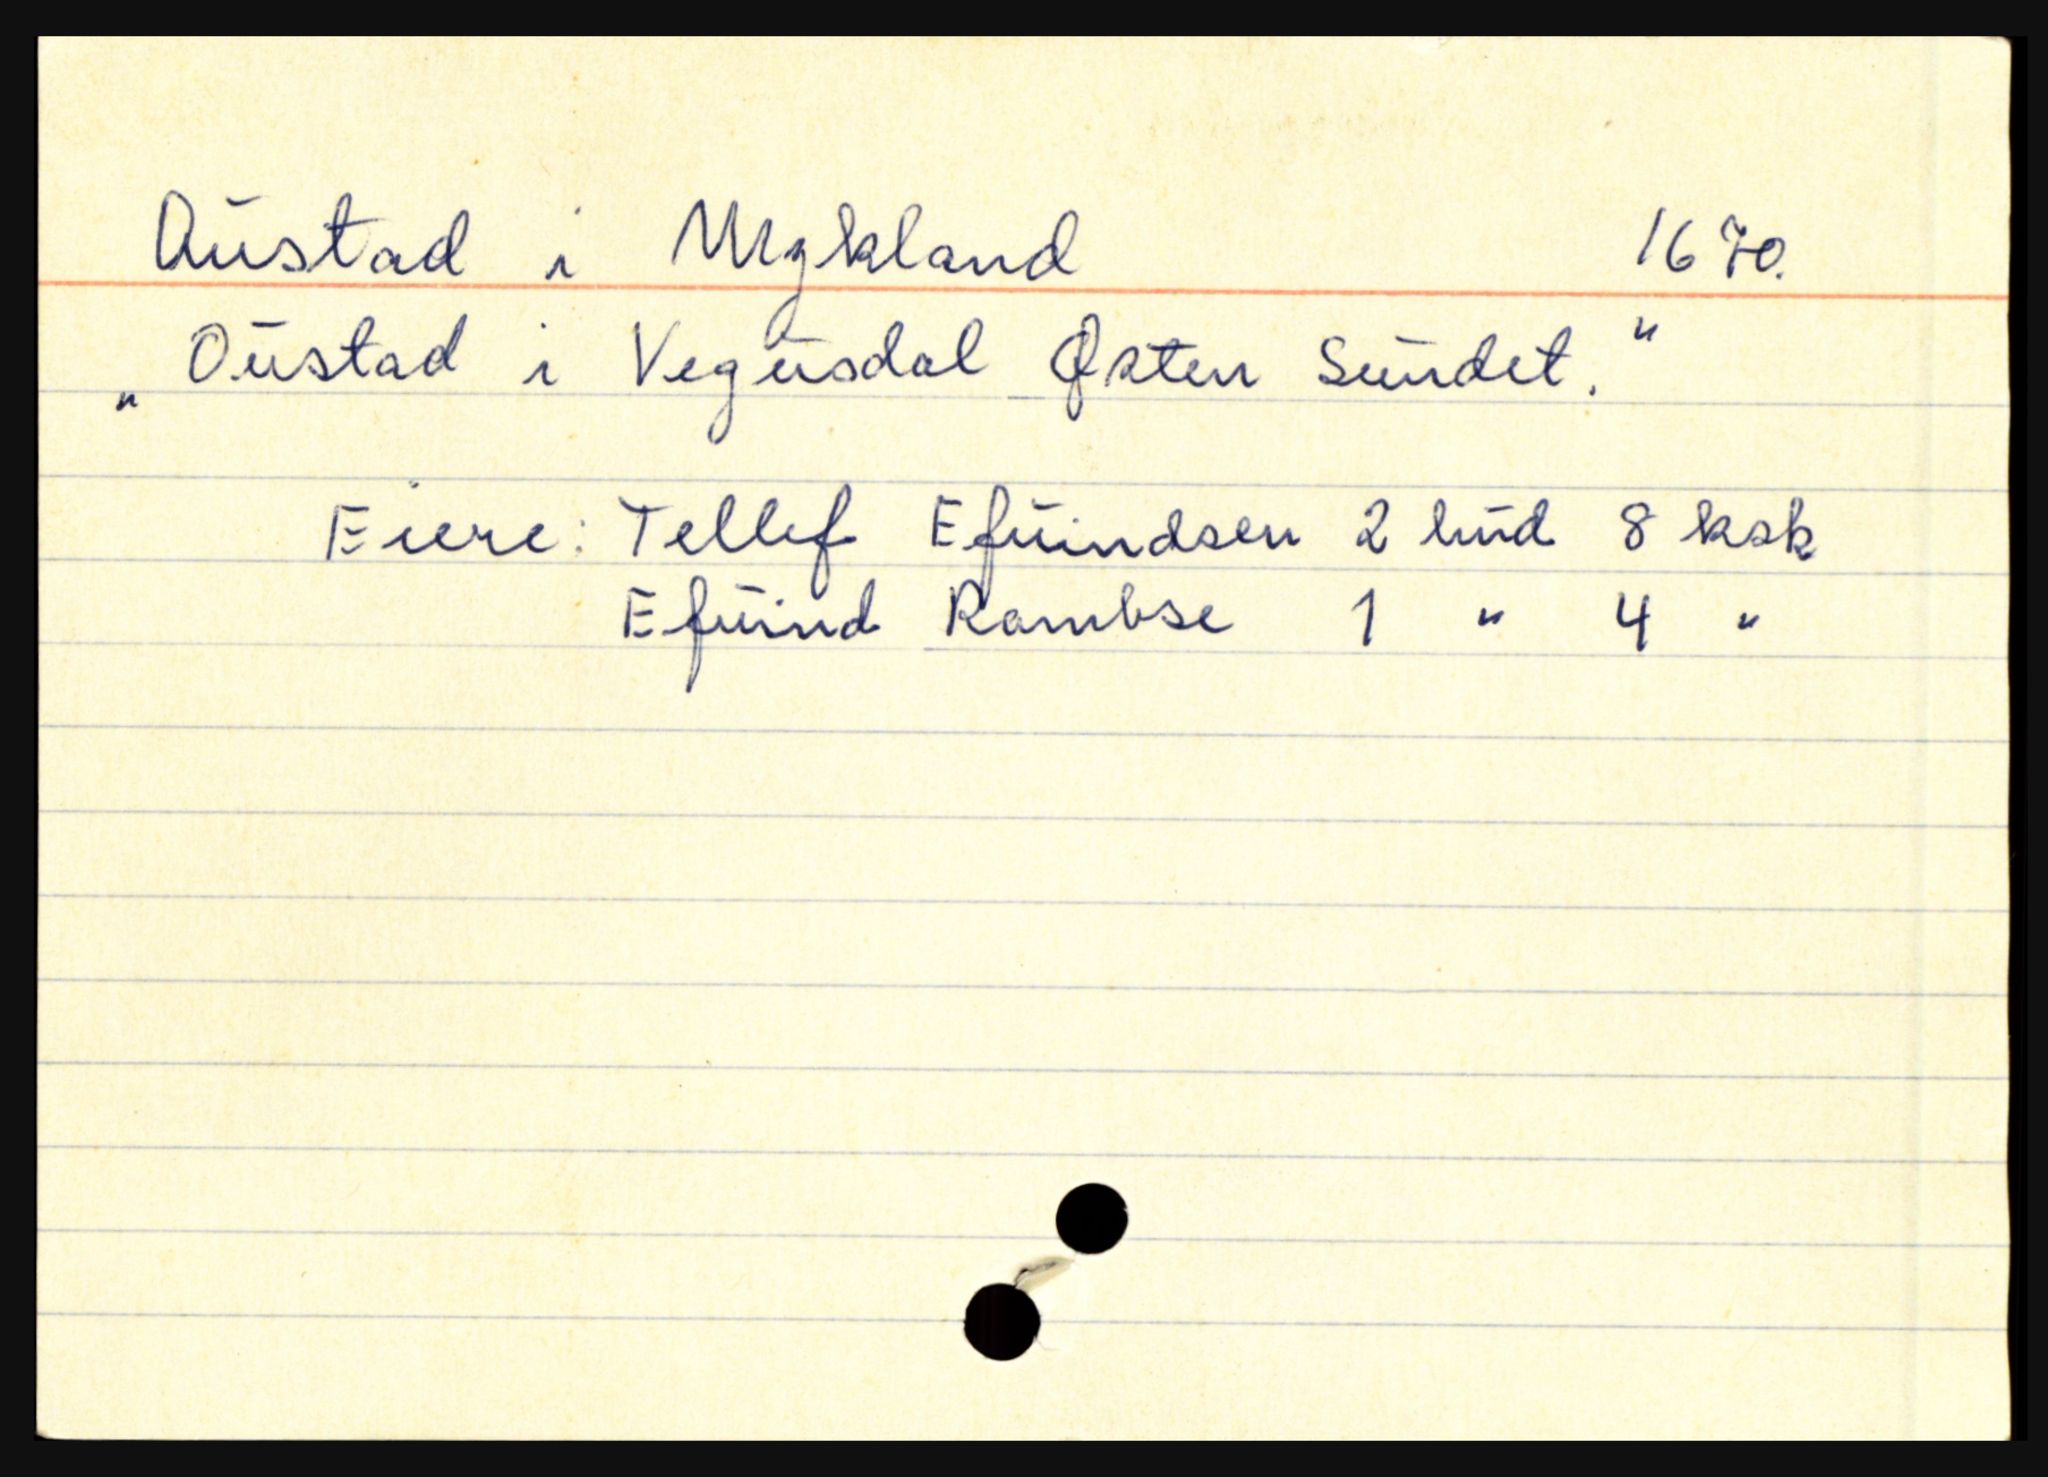 Austad i Mykland 1670.
„ Oustad i Vegusdal Østen Sundet. "
Eiere: Tellef Efuindsen 2 hud 8 ksk
Efuind Rambse 1 " 4 "